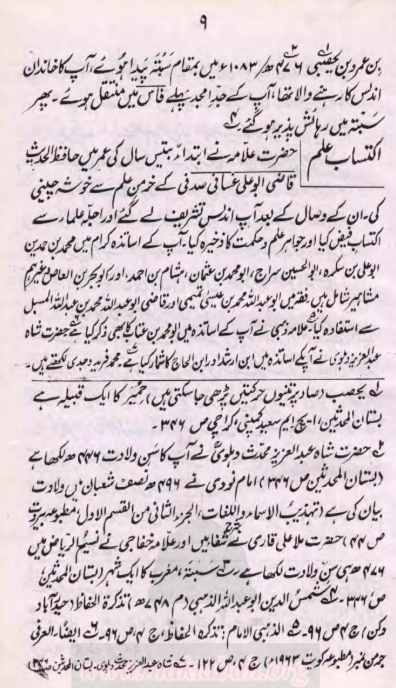 ۹
بن عمرو بن یحصبی ۴۷۶ھ/۱۰۸۳ء میں بمقام سَبتہ پیدا ہوئے، آپ کا خاندان
اندلس کا رہنے والا تھا، آپ کے جدِّ امجد پہلے فاس میں منتقل ہوئے۔ پھر
سَبتہ میں رہائش پذیر ہو گئے۔
اکتسابِ علم حضرت علامہ نے ابتداءً بتیس سال کی عمر میں حافظ الحدیث
قاضی ابو علی غسانی صدفی کے خرمنِ علم سے خوشہ چینی
کی۔ ان کے وصال کے بعد آپ اندلس تشریف لے گئے اور اجلّہ علماء سے
اکتسابِ فیض کیا اور جواہر علم و حکمت کا ذخیرہ کیا۔ آپ کے اساتذہ کرام میں محمد بن حمدین
ابو علی بن سکرہ، ابو الحسین سراج، ابو محمد بن عثمان، ہشام بن احمد، اور ابو بحر بن العاص وغیرہم
مشاہیر شامل ہیں۔ فقہ میں ابو عبداللہ محمد بن عیسیٰ تمیمی اور قاضی ابو عبداللہ محمد بن عبداللہ المسیل
سے استفادہ کیا۔ علامہ ذہبی نے آپ کے اساتذہ میں ابو محمد بن عتاب کا بھی ذکر کیا ہے۔ حضرت شاہ
عبدالعزیز دہلوی نے آپ کے اساتذہ میں ابن رشد اور ابن الحاج کا شمار کیا ہے۔ محمد فرید وجدی لکھتے ہیں۔
۱ یحصب (صاد پر تینوں حرکتیں پڑھی جا سکتی ہیں) حمیر کا ایک قبیلہ ہے
بستان المحدثین، ایچ ایم سعید کمپنی، کراچی ص ۳۴۶۔
۲ حضرت شاہ عبدالعزیز محدث دہلوی نے آپ کا سن ولادت ۴۴۶ھ لکھا ہے
(بستان المحدثین ص ۳۴۶) امام نووی نے ۴۹۶ھ نصف شعبان میں ولادت
بیان کی ہے (تہذیب الاسماء واللغات، الجزء الثانی من القسم الاول، مطبوعہ بیروت
ص ۴۴) حضرت ملا علی قاری نے شرح شفا میں اور علامہ خفاجی نے نسیم الریاض میں
۴۷۶ھ ہی سنِ ولادت لکھا ہے ۳ سَبتہ، مغرب کا ایک شہر (بستان المحدثین،
ص ۳۴۶۔ ۴ شمس الدین ابو عبداللہ الذہبی (م ۷۴۸ھ) تذکرۃ الحفاظ (حیدرآباد
دکن) ج ۴ ص ۹۶۔ ۵ الذہبی الامام: تذکرۃ الحفاظ، ج ۴ ص ۹۶۔ ۶ ایضاً، العبر فی
خبر من غبر (مطبوعہ کویت ۱۹۶۳ء) ج ۴، ص ۱۲۲۔ ۷ شاہ عبدالعزیز محدث دہلوی، بستان المحدثین ص